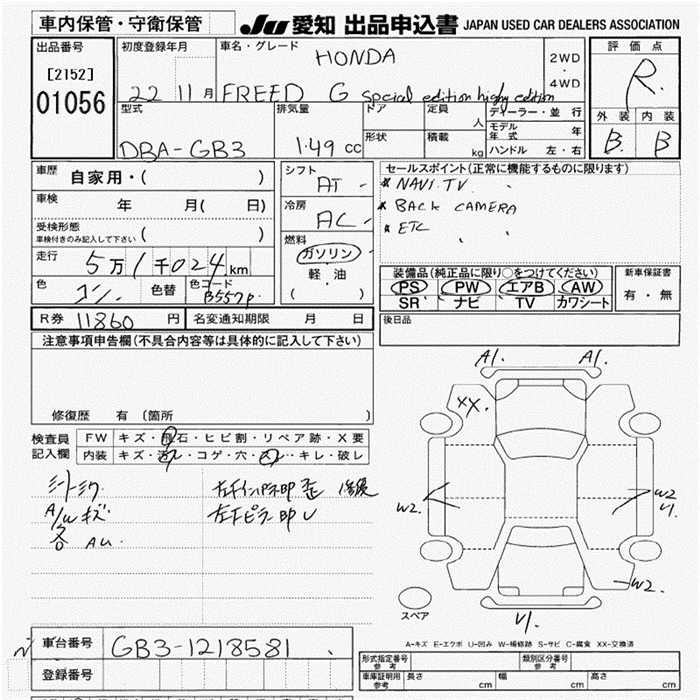 車内保管・守衛保管
JU 愛知 出品申込書 JAPAN USED CAR DEALERS ASSOCIATION
出品番号
[2152]
01056
初度登録年月
22 11月
車名・グレード
HONDA
FREED G Special edition
2WD
・
4WD
評価点
R.
外装 内装
B. B
型式
DBA-GB3
排気量
1.49 cc
ドア
形状
定員 人
積載 kg
ディーラー・並行
モデル年式 年
ハンドル 左・右
車歴 自家用・( )
車検 年 月( 日)
受検形態
車検付きのみ記入して下さい ( )
走行 5万1千024km
色 色替 色コード
B557P
シフト
AT
冷房
AC
燃料
ガソリン
・
軽油
( )
セールスポイント(正常に機能するものに限ります)
* NAVI. TV.
* BACK CAMERA
* ETC
装備品(純正品に限り○をつけてください)
PS PW エアB AW
SR ナビ TV カワシート
新車保証書
有・無
R券 11860 円 名変通知期限 月 日
後日品
注意事項申告欄(不具合内容等は具体的に記入して下さい)
修復歴 有 (箇所 )
検査員
記入欄
FW キズ・飛石・ヒビ割・リペア跡・X要
内装 キズ・汚レ・コゲ・穴・スレ・キレ・破レ
シートシワ
A/Wキズ
各 AU.
修復
A1. A1.
XX.
W2. W2
U1.
W2.
U1.
スペア
A-キズ E-エクボ U-凹み W-補修跡 S-サビ C-腐食 XX-交換済
車台番号 GB3-1218581
登録番号
形式指定番号
参考
類別区分番号
参考
車庫証明用
参考
長さ cm 幅 cm 高さ cm